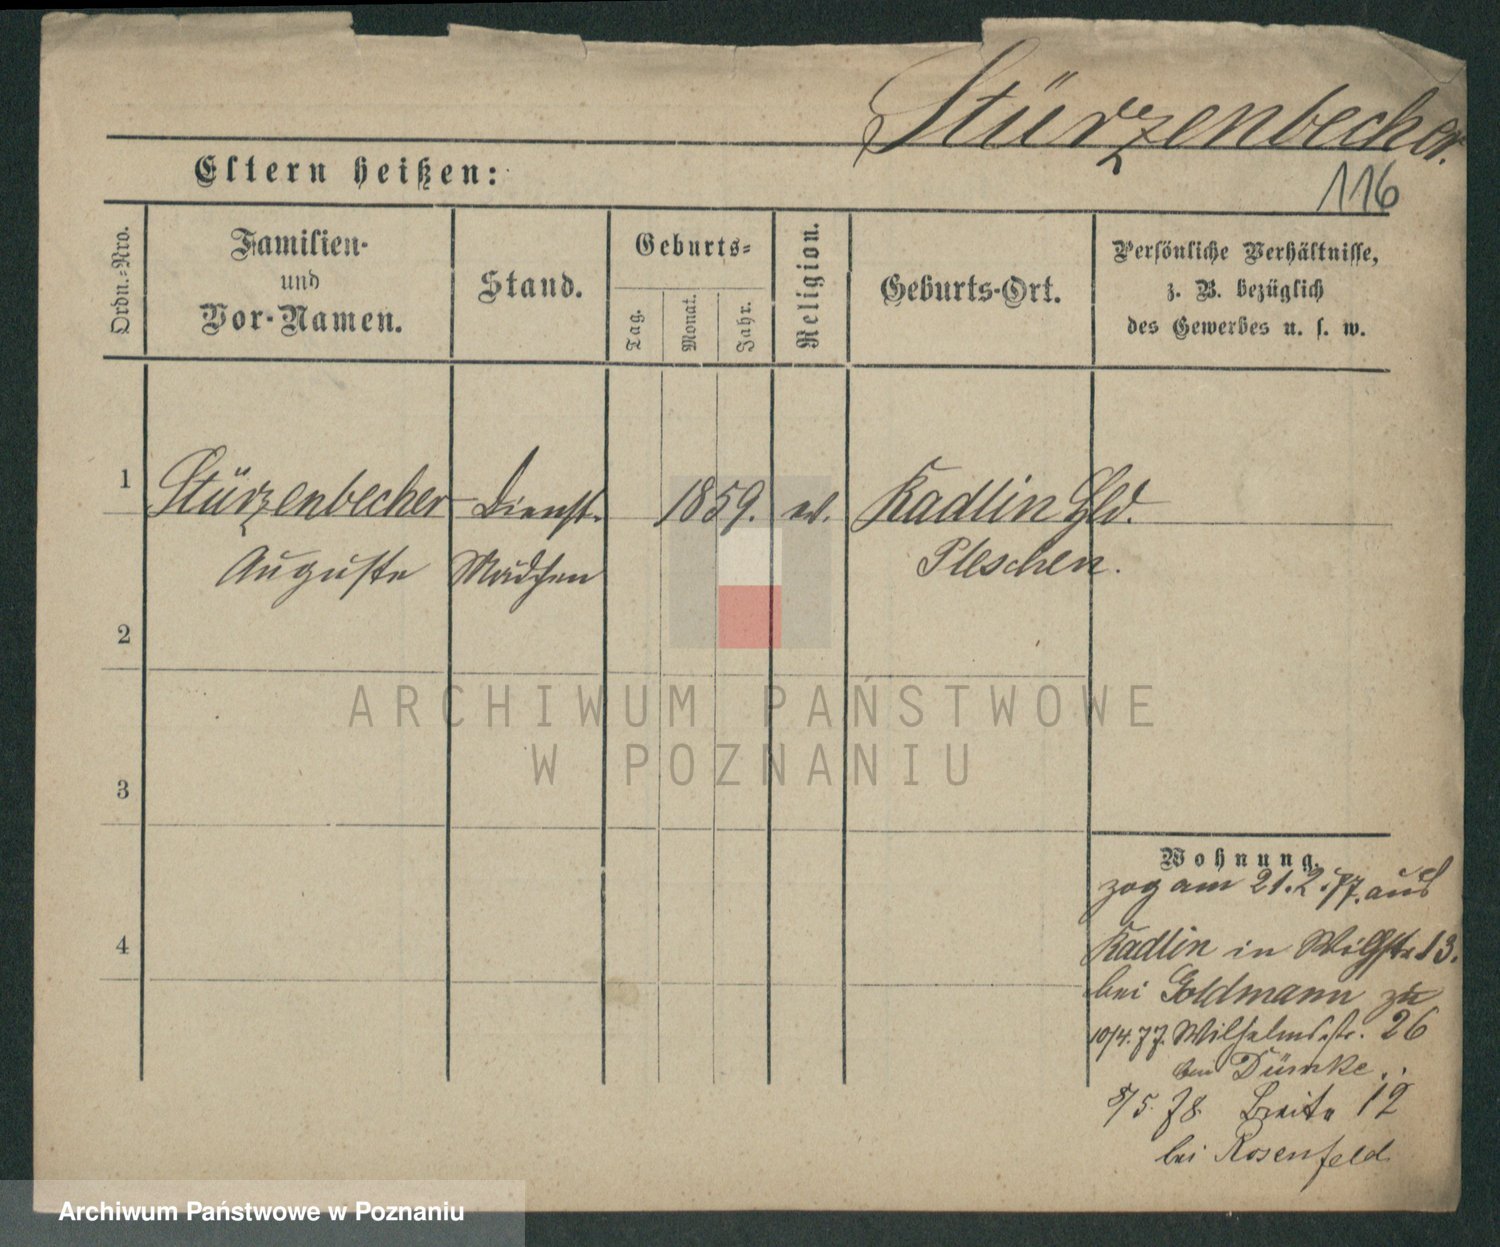 Stürzenbecher.
116
Eltern heißen:
Ordn.-Nro.
Familien-
und
Vor-Namen.
Stand.
Geburts-
Tag.
Monat.
Jahr.
Religion.
Geburts-Ort.
Persönliche Verhältnisse,
z. B. bezüglich
des Gewerbes u. s. w.
1
Stürzenbecher
Auguste
Dienst-
Mädchen
1859.
ev.
Kadlin Hld.
Pleschen.
2
3
4
Wohnung.
zog am 21.2.77. aus
Kadlin in Wilhstr. 13.
bei Goldmann zu
10/4.77. Wilhelmsstr. 26
bei Dümke.
8/5.78. Breite 12
bei Rosenfeld
ARCHIWUM PAŃSTWOWE
W POZNANIU
Archiwum Państwowe w Poznaniu